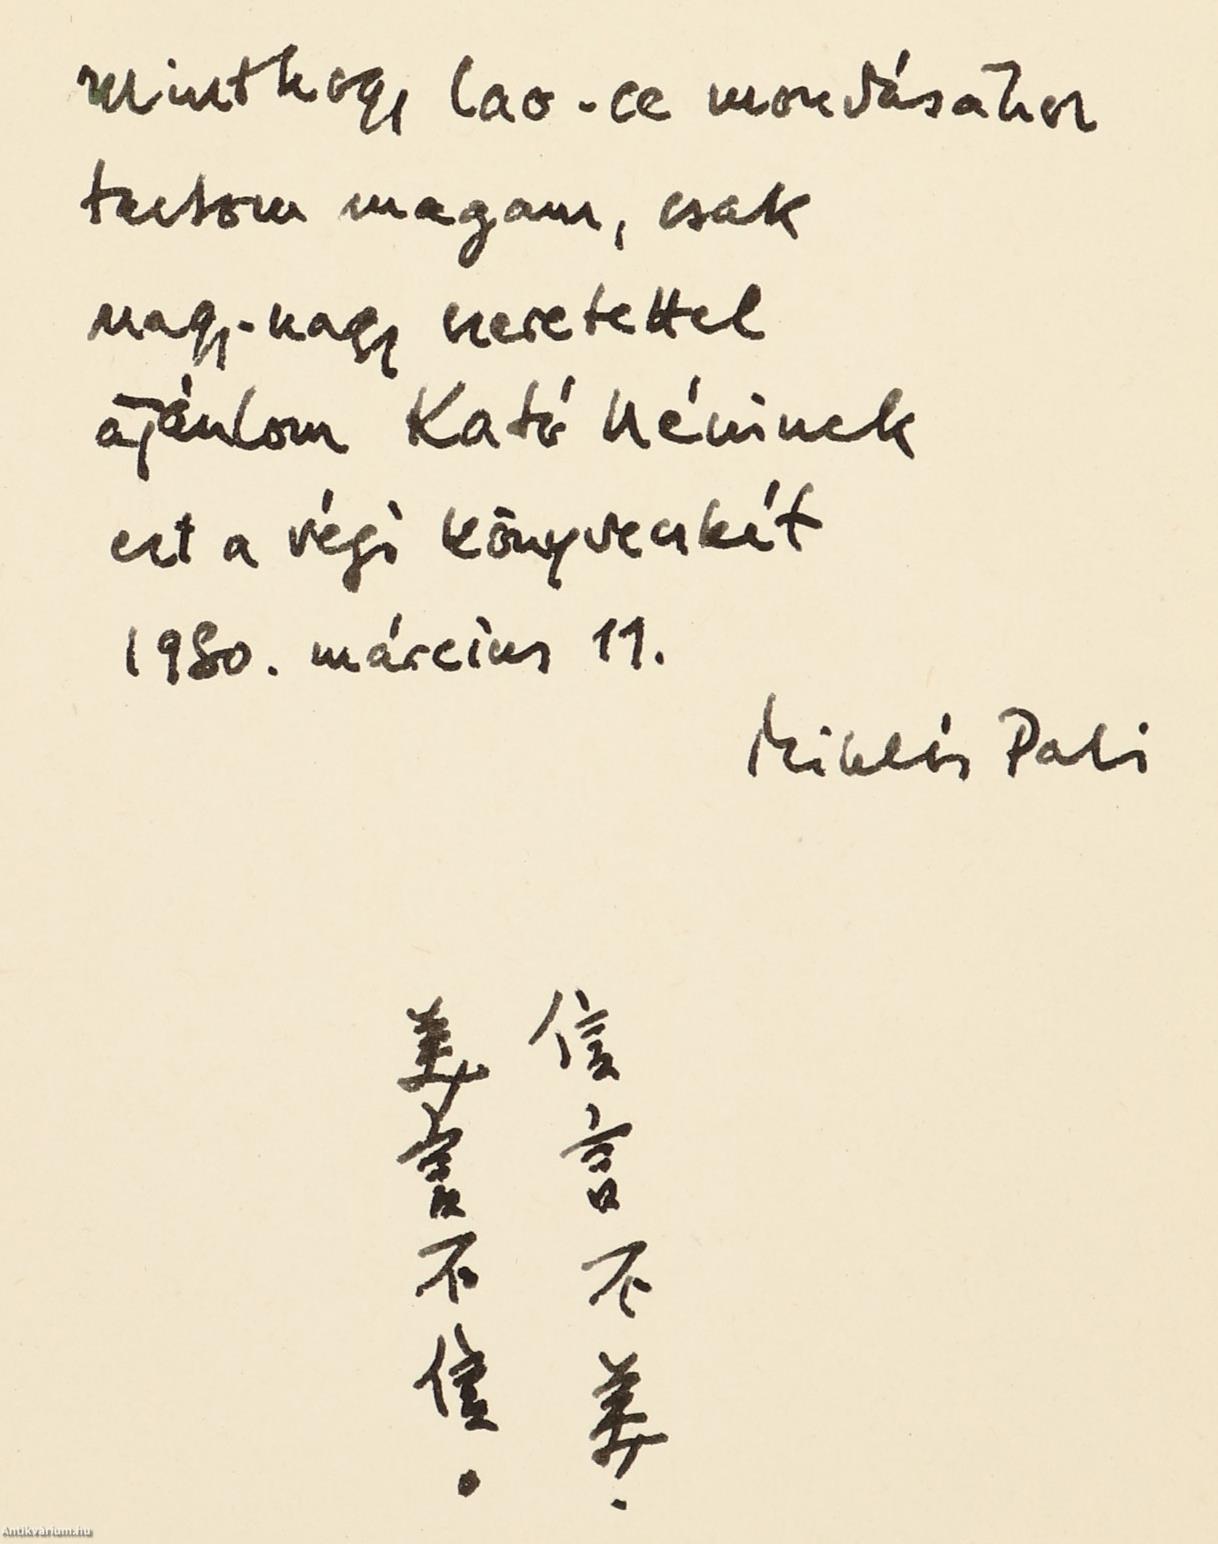 Minthogy Lao-ce mondásához
tartom magam, csak
nagy-nagy szeretettel
ajánlom Kató néninek
ezt a régi könyvecskét
1980. március 11.
Miklós Pali
信言不美.
美言不信.
Antikvarium.hu